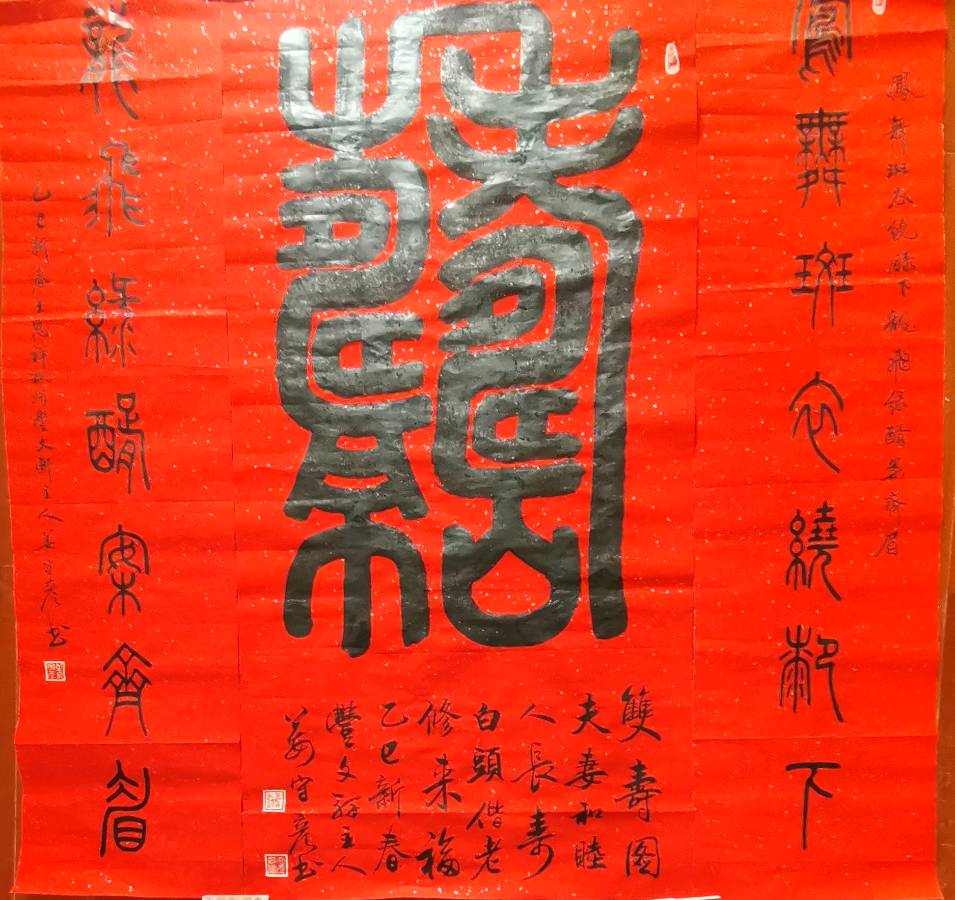 鳳舞斑衣繞膝下龍飛綠醑案齊眉
鳳舞斑衣繞厀下
雙壽圖
夫妻和睦
人長寿
白頭偕老
修来福
乙巳新春
豐文軒主人
姜守彦书
龍飛綠醑案齊眉
乙巳新春豐文軒主人姜守彦书